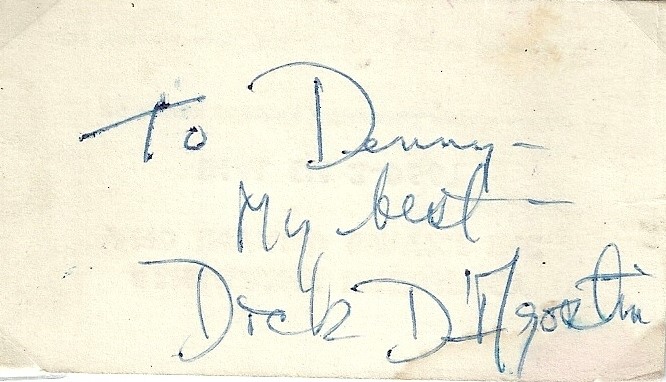 To Denny-
My best-
Dick D'Agostin